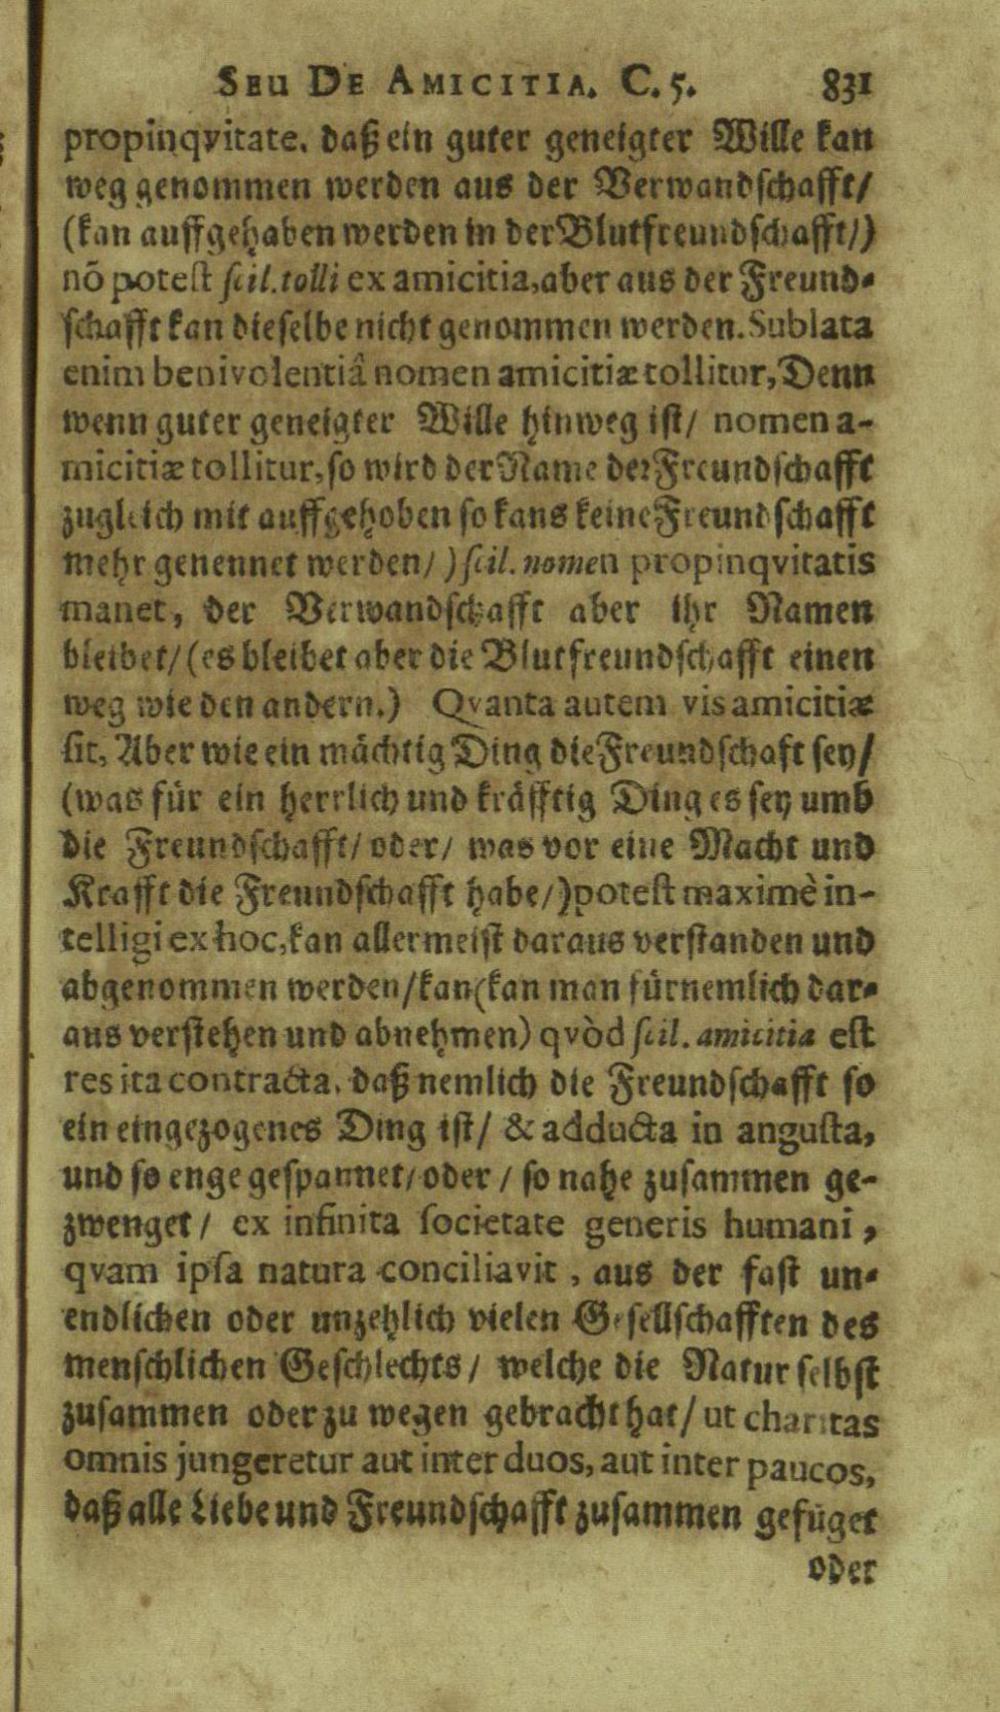 SEU DE AMICITIA. C. 5. 831
propinqvitate, daß ein guter geneigter Wille kan
weg genommen werden aus der Verwandschafft/
(kan auffgehaben werden in der Blutfreundschafft/)
nõ potest scil. tolli ex amicitia, aber aus der Freund-
schafft kan dieselbe nicht genommen werden. Sublata
enim benivolentiâ nomen amicitiæ tollitur, Denn
wenn guter geneigter Wille hinweg ist/ nomen a-
micitiæ tollitur, so wird der Name der Freundschafft
zugleich mit auffgehoben so kans keine Freundschafft
mehr genennet werden/) scil. nomen propinqvitatis
manet, der Verwandschafft aber ihr Namen
bleibet/ (es bleibet aber die Blutfreundschafft einen
weg wie den andern.) Qvanta autem vis amicitiæ
sit, Aber wie ein mächtig Ding die Freundschaft sey/
(was für ein herrlich und kräfftig Ding es sey umb
die Freundschafft/ oder/ was vor eine Macht und
Krafft die Freundschafft habe/) potest maximè in-
telligi ex hoc, kan allermeist daraus verstanden und
abgenommen werden/ kan (kan man fürnemlich dar-
aus verstehen und abnehmen) qvòd scil. amicitia est
res ita contracta, daß nemlich die Freundschafft so
ein eingezogenes Ding ist/ & adducta in angusta,
und so enge gespannet/ oder/ so nahe zusammen ge-
zwenget/ ex infinita societate generis humani,
qvam ipsa natura conciliavit, aus der fast un-
endlichen oder unzehlich vielen Gesellschafften des
menschlichen Geschlechts/ welche die Natur selbst
zusammen oder zu wegen gebracht hat/ ut charitas
omnis jungeretur aut inter duos, aut inter paucos,
daß alle Liebe und Freundschafft zusammen gefüget
oder